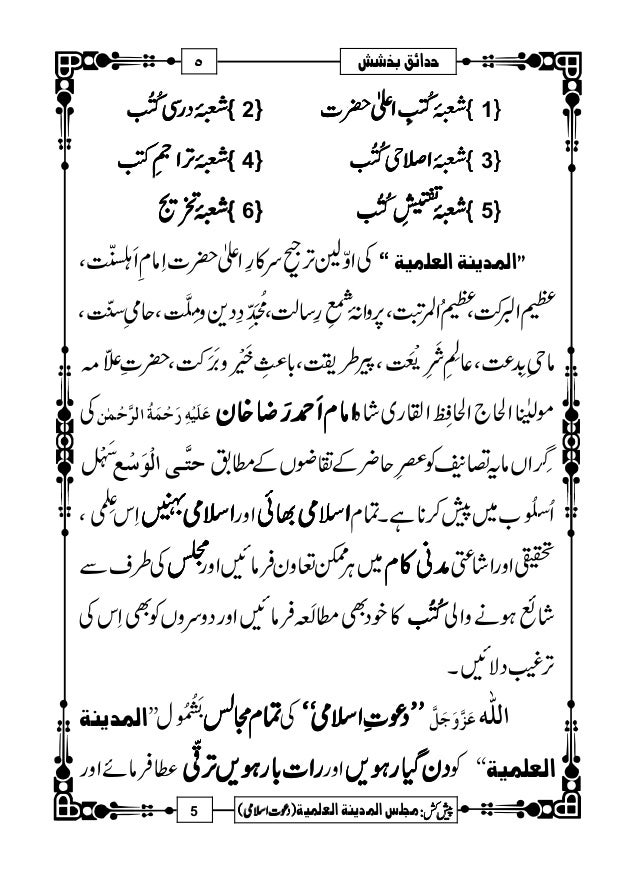 حدائق بخشش ۵
{1} شعبۂ کُتُبِ اعلیٰ حضرت {2} شعبۂ درسی کُتُب
{3} شعبۂ اصلاحی کُتُب {4} شعبۂ تراجمِ کتب
{5} شعبۂ تفتیشِ کُتُب {6} شعبۂ تخریج
”المدینۃ العلمیۃ“ کی اوّلین ترجیح سرکارِ اعلیٰ حضرت اِمامِ اَہلسنّت،
عظیم البرکت، عظیمُ المرتبت، پروانۂ شمعِ رِسالت، مُجَدِّدِ دین و مِلَّت، حامیِ سنّت،
ماحیِ بِدعت، عالمِ شَرِیْعَت، پیرِ طریقت، باعثِ خَیْر و بَرَکت، حضرتِ علّا مہ
مولیٰنا الحاج الحافِظ القاری شاہ امام اَحمد رَضا خان عَلَیْہِ رَحْمَۃُ الرَّحْمٰن کی
گِراں مایہ تصانیف کو عصرِ حاضر کے تقاضوں کے مطابق حتَّی الْوَسْع سَہْل
اُسلُوب میں پیش کرنا ہے۔ تمام اسلامی بھائی اور اسلامی بہنیں اِس عِلمی،
تحقیقی اور اشاعتی مدنی کام میں ہر ممکن تعاون فرمائیں اور مجلس کی طرف سے
شائع ہونے والی کُتُب کا خود بھی مطالَعہ فرمائیں اور دوسروں کو بھی اِس کی
ترغیب دلائیں۔
اللہ عَزَّوَجَلَّ ”دعوتِ اسلامی“ کی تمام مجالس بَشُمُول ”المدینۃ
العلمیۃ“ کو دن گیارہویں اور رات بارہویں ترقّی عطا فرمائے اور
پیش کش: مجلس المدینۃ العلمیۃ (دعوتِ اسلامی) 5